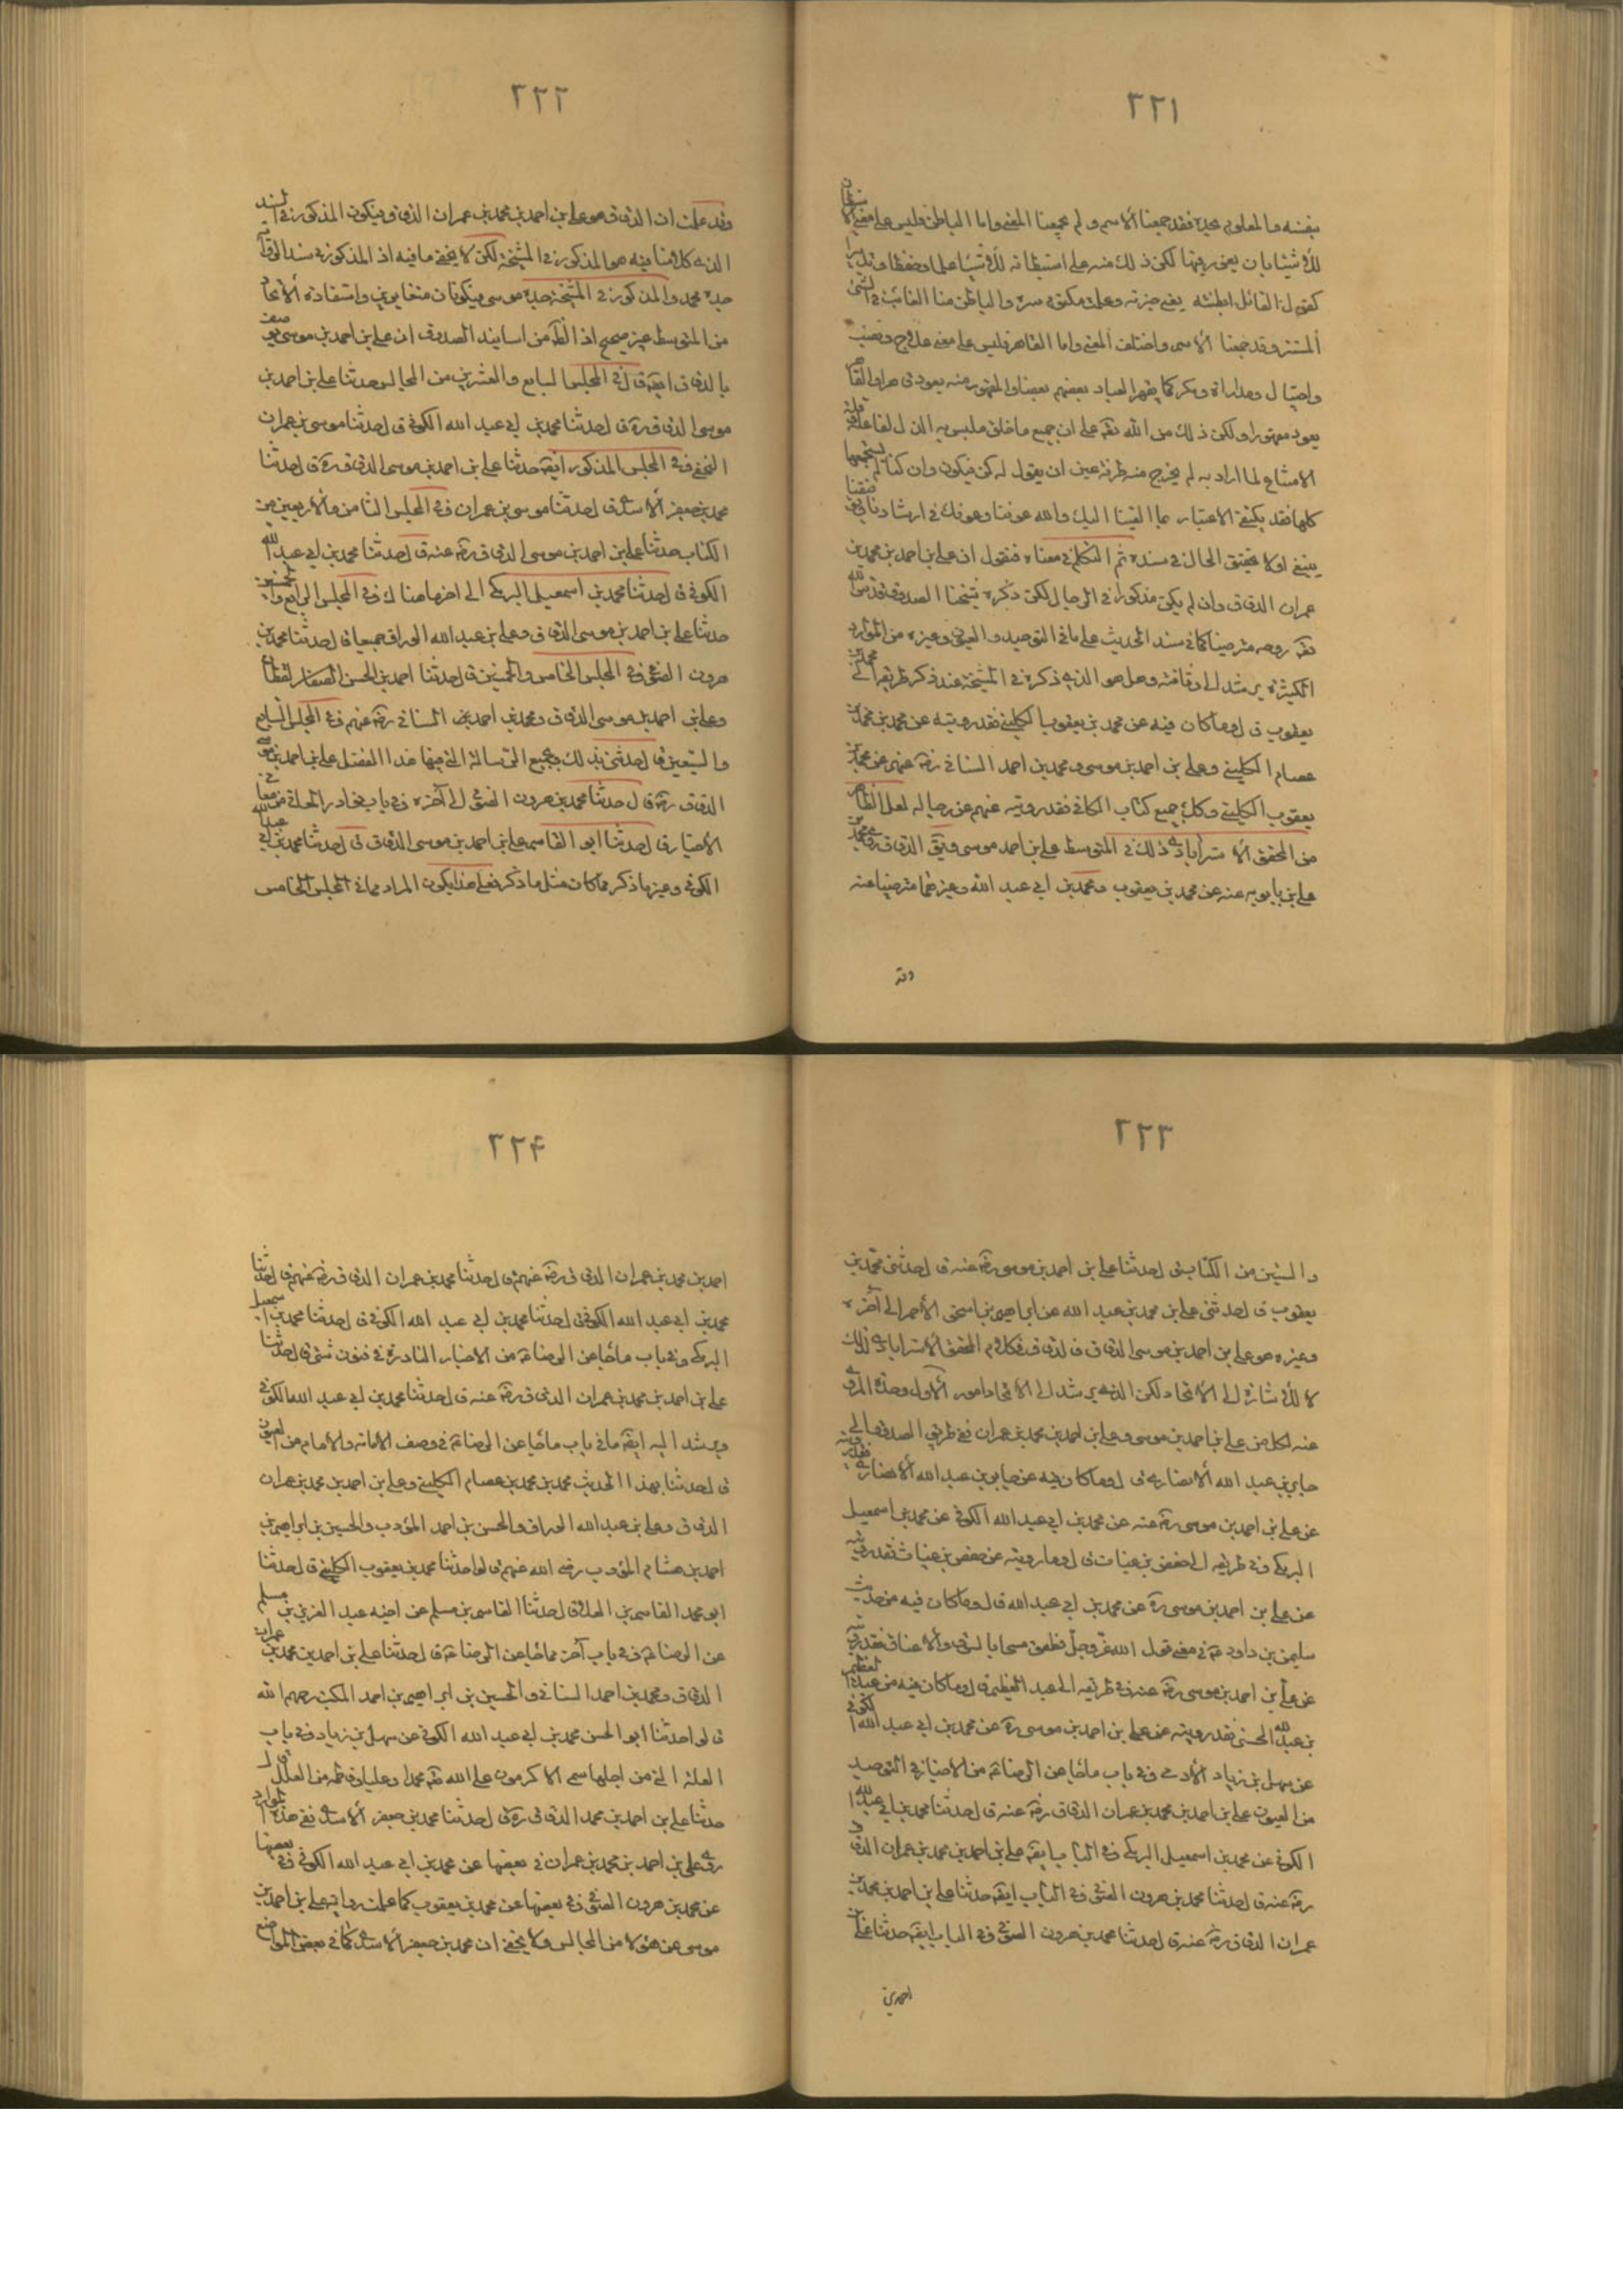 ٣٢١
بنفسه والمعلوم بحده فقد جمعنا الاسم ولم يجمعنا المعنى واما الباطن فليس على معنى الاستبطان
للاشياء بان يغور فيها لكن ذلك منه على استبطانه للاشياء علما وحفظا وتدبيرا
كقول القائل ابطنته يعني خبرته وعلمت مكتوم سره والباطن منا الغائب في الشيء
المستتر وقد جمعنا الاسم واختلف المعنى واما القاهر فليس على معنى علاج ونصب
واحتيال ومداراة ومكر كما يقهر العباد بعضهم بعضا والمقهور منه يعود قاهرا والقاهر
يعود مقهورا ولكن ذلك من الله تعه على ان جميع ما خلق ملبس به الذل لفاعله وقلة
الامتناع لما اراد به لم يخرج منه طرفة عين ان يقول له كن فيكون وان كنا لم نستجمعها
كلها فقد يكتفي الاعتبار بما القينا اليك والله عوننا وعونك في ارشادنا وتوفيقنا
ينبغي اولا تحقيق الحال في سنده ثم التكلم في معناه فنقول ان علي بن احمد بن محمد بن
عمران الدقاق وان لم يكن مذكورا في الرجال لكن ذكره شيخنا الصدوق قدس الله
تعه روحه مترضيا كما في سند الحديث على ما في التوحيد والعيون وغيره من الموارد
الكثيرة يرشد الى وثاقته وهل هو الذي ذكره في المشيخة عند ذكر طريقه الى محمد بن
يعقوب قال وما كان فيه عن محمد بن يعقوب الكليني فقد رويته عن محمد بن محمد بن
عصام الكليني وعلي بن احمد بن موسى ومحمد بن احمد السناني رضه عنهم عن محمد بن
يعقوب الكليني وكك جميع كتاب الكافي فقد رويته عنهم عن رجاله لعل الظاهر
من المحقق الاسترابادي ذلك في المتوسط علي بن احمد موسى الدقاق روى محمد بن
علي بن بابويه عنه عن محمد بن يعقوب ومحمد بن ابي عبد الله وغيرهما مترضيا عنه
وقد
٣٢٢
وقد علمت ان الدقاق هو علي بن احمد بن محمد بن عمران الدقاق فيكون المذكور في السند
الذي كلامنا فيه هو المذكور في المشيخة لكن لا يخفى ما فيه اذ المذكور في سند التوحيد
جده محمد والمذكور في المشيخة جده موسى فيكونان متغايرين واستفادة الاتحاد
من المتوسط غير صحيح اذ الظاهر من اسانيد الصدوق ان علي بن احمد بن موسى يوصف
بالدقاق ايضا قال في المجلس السابع والعشرين من المجالس حدثنا علي بن احمد بن
موسى الدقاق ره قال حدثنا محمد بن ابي عبد الله الكوفي قال حدثنا موسى بن عمران
النخعي وفي المجلس المذكور ايضا حدثنا علي بن احمد بن موسى الدقاق ره قال حدثنا
محمد بن جعفر الاسدي قال حدثنا موسى بن عمران وفي المجلس الثامن والاربعين من
الكتاب حدثنا علي بن احمد بن موسى الدقاق رضه عنه قال حدثنا محمد بن ابي عبد الله
الكوفي قال حدثنا محمد بن اسمعيل البرمكي الى اخر ما هناك وفي المجلس الرابع والخمسين
حدثنا علي بن احمد بن موسى الدقاق وعلي بن عبد الله الوراق جميعا قال حدثنا محمد بن
هرون الصوفي وفي المجلس الخامس والخمسين قال حدثنا احمد بن الحسن القطان
وعلي بن احمد بن موسى الدقاق ومحمد بن احمد السناني رضه عنهم وفي المجلس السابع
والستين قال حدثني بذلك وبجميع الرسالة التي فيها هذا الفصل علي بن احمد بن موسى
الدقاق ره قال حدثنا محمد بن هرون الصوفي الى آخره وفي باب نوادر المعاني من معاني
الاخبار قال حدثنا ابو القاسم علي بن احمد بن موسى الدقاق قال حدثنا محمد بن ابي عبد الله
الكوفي وغير ما ذكر مما كان مثل ما ذكر فعلى هذا يكون المراد مما في المجلس الخامس
٣٢٣
والستين من الكتاب قال حدثنا علي بن احمد بن موسى رضه عنه قال حدثني محمد بن
يعقوب قال حدثني علي بن محمد بن عبد الله عن ابراهيم بن اسحق الاحمر الى آخره
وغيره هو علي بن احمد بن موسى الدقاق فالدقاق في كلام المحقق الاسترابادي لذلك
لا للاشارة الى الاتحاد لكن الذي يرشد الى الاتحاد امور الاول وحدة المروي
عنه لكل من علي بن احمد بن موسى وعلي بن احمد بن محمد بن عمران ففي طريق الصدوق الى
جابر بن عبد الله الانصاري قال وما كان فيه عن جابر بن عبد الله الانصاري فقد رويته
عن علي بن احمد بن موسى رضه عنه عن محمد بن ابي عبد الله الكوفي عن محمد بن اسمعيل
البرمكي وفي طريقه الى حفص بن غياث قال وما رويته عن حفص بن غياث فقد رويته
عن علي بن احمد بن موسى ره عن محمد بن ابي عبد الله قال وما كان فيه من حديث
سليمن بن داود ع في معنى قول الله عز وجل فطفق مسحا بالسوق والاعناق فقد رويته
عن علي بن احمد بن موسى رضه عنه وفي طريقه الى عبد العظيم قال وما كان فيه عن عبد العظيم
بن عبد الله الحسني فقد رويته عن علي بن احمد بن موسى ره عن محمد بن ابي عبد الله الكوفي
عن سهل بن زياد الادمي وفي باب ما جاء عن الرضا ع من الاخبار في التوحيد
من العيون علي بن احمد بن محمد بن عمران الدقاق رضه عنه قال حدثنا محمد بن ابي عبد الله
الكوفي عن محمد بن اسمعيل البرمكي وفي الباب ايضا علي بن احمد بن محمد بن عمران الدقاق
رضه عنه قال حدثنا محمد بن هرون الصوفي وفي الباب ايضا حدثنا علي بن احمد بن محمد بن
عمران الدقاق رضه عنه قال حدثنا محمد بن هرون الصوفي وفي الباب ايضا حدثنا علي بن
احمد بن
٣٢۴
احمد بن محمد بن عمران الدقاق رضه عنهم قال حدثنا محمد بن عمران الدقاق رضه عنهم قال حدثنا
محمد بن ابي عبد الله الكوفي قال حدثنا محمد بن ابي عبد الله الكوفي قال حدثنا محمد بن اسمعيل
البرمكي وفي باب ما جاء عن الرضا ع من الاخبار النادرة في فنون شتى قال حدثنا
علي بن احمد بن محمد بن عمران الدقاق رضه عنه قال حدثنا محمد بن ابي عبد الله الكوفي
ويرشد اليه ايضا ما في باب ما جاء عن الرضا ع في وصف الامامة والامام من العيون
قال حدثنا بهذا الحديث محمد بن محمد بن عصام الكليني وعلي بن احمد بن محمد بن عمران
الدقاق وعلي بن عبد الله الوراق والحسن بن احمد المؤدب والحسين بن ابراهيم بن
احمد بن هشام المؤدب رضي الله عنهم قالوا حدثنا محمد بن يعقوب الكليني قال حدثنا
ابو محمد القاسم بن العلا قال حدثنا القاسم بن مسلم عن اخيه عبد العزيز بن مسلم
عن الرضا ع وفي باب آخر مما جاء عن الرضا ع قال حدثنا علي بن احمد بن محمد بن عمران
الدقاق ومحمد بن احمد السناني والحسين بن ابراهيم بن احمد المكتب رحمهم الله
قالوا حدثنا ابو الحسن محمد بن ابي عبد الله الكوفي عن سهل بن زياد وفي باب
العلة التي من اجلها سمى الاكرمون على الله تعه محمدا وعليا وفاطمه من العلل قال
حدثنا علي بن احمد بن محمد الدقاق ره قال حدثنا محمد بن جعفر الاسدي ففي هذه الموارد
روى علي بن احمد بن محمد بن عمران في بعضها عن محمد بن ابي عبد الله الكوفي وفي بعضها
عن محمد بن هرون الصوفي وفي بعضها عن محمد بن يعقوب كما علمت رواية علي بن احمد بن
موسى عن هؤلاء من المجالس ولا يخفى ان محمد بن جعفر الاسدي كما في بعض المواضع